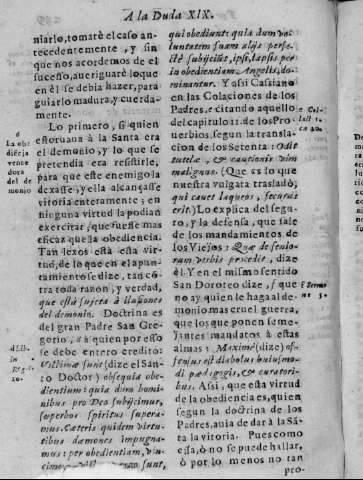 A la Duda XIX.
niarlo, tomarè el caso an-
tecedentemente, y sin
que nos acordemos de el
sucesso, aueriguarè lo que
en èl se debia hazer, para
guiarlo madura, y cuerda-
mente.
Lo primero, si quien
estoruaua à la Santa era
el demonio, y lo que se
pretendia era resistirle,
para que este enemigo la
dexasse, y ella alcançasse
vitoria enteramente; en
ninguna virtud la podian
exercitar, que fuesse mas
eficaz que la obediencia.
Tan lexos està esta vir-
tud, de lo que en el apun-
tamiento se dize, tan cõ-
tra toda razon, y verdad,
que està sujeta à ilusiones
del demonio. Doctrina es
del gran Padre San Gre-
gorio, à quien por esso
se debe entero credito:
Victimæ sunt (dize el San-
to Doctor) obsequia obe-
dientium: quia dum homi-
nibus pro Deo subijcimur,
superbos spiritus supera-
mus. Cæteris quidem virtu-
tibus dæmones impugna-
mus: per obedientiam, vin-
sunt,
6
La obe-
diẽcia
vence-
dora
del de-
monio
d Lib.
in Reg. c.
10.
qui obediunt: quia dum vo-
luntatem suam alijs perfe-
ctè subijciũt, ipsi, lapsis per
in obedientiam Angelis, do-
minantur. Y assi Casiano
en las Colaciones de los
Padres, e citando aquello
del capitulo 11. de los Pro-
uerbios, segun la transla-
cion de los Setenta: Odit
tutelæ, & cautionis vim
malignus. (Que es lo que
nuestra vulgata trasladò;
qui cauet laqueos, securus
erit.) Lo explica del segu-
ro, y la defensa, que sale
de los mandamientos de
los Viejos: Quæ de senio-
rum verbis procedit, dize
èl. Y en el mismo sentido
San Doroteo dize, f que
no ay quien le haga al de-
monio mas cruel guerra,
que los que ponen seme-
jantes mandatos à estas
almas: Maximè (dize) of-
fensus est diabolus huiusmo-
di pædagogis, & curatori-
bus. Assi, que esta virtud
de la obediencia es, quien
segun la doctrina de los
Padres, auia de dar à la Sã-
ta la vitoria. Pues como
essa, ò no se puede hallar,
ò por lo menos no tan
pro-
e Col-
lat. 2.
ca. 20.
f Sermo
5.